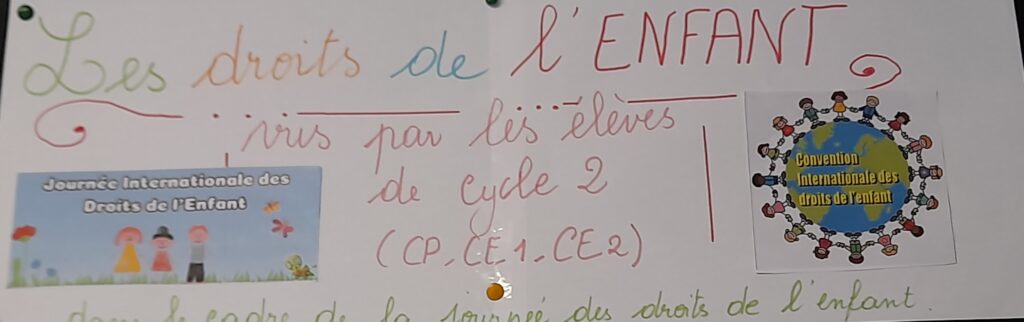 Les droits de l'ENFANT
vus par les élèves
de cycle 2
(CP, CE1, CE2)
Journée Internationale des
Droits de l'Enfant
Convention
Internationale des
droits de l'enfant
dans le cadre de la journée des droits de l'enfant.